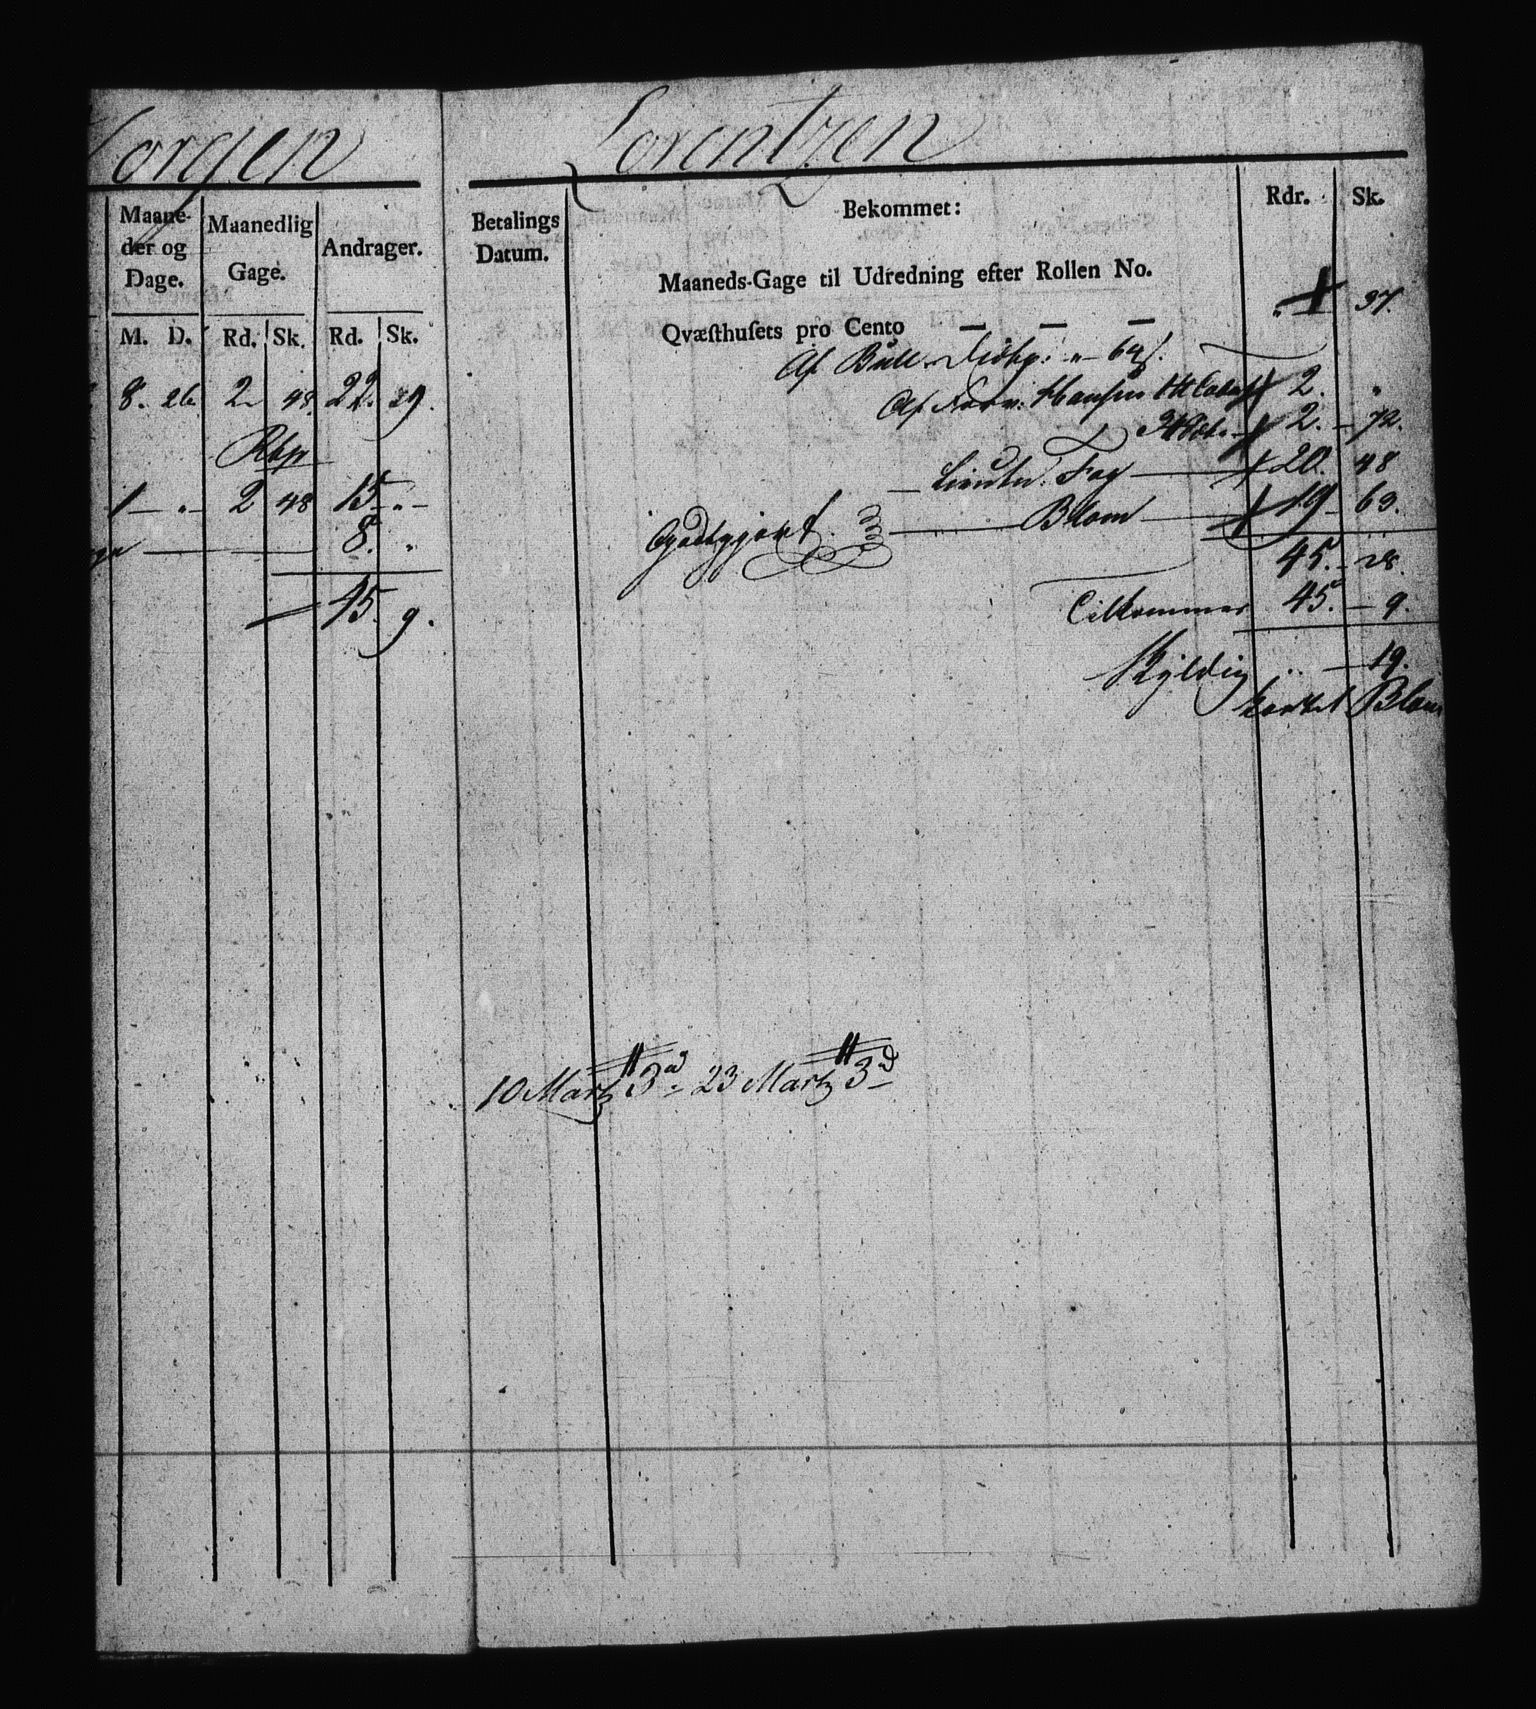 Jorgen Lorentzen
Maane-
der og
Dage.
Maanedlig
Gage.
Andrager.
M. D. Rd. Sk. Rd. Sk.
8. 26. 2 48. 22. 29.
Rbp
1 - „ - 2 48 15 - „ -
8. „
45. 9.
Betalings
Datum.
Bekommet:
Rdr. Sk.
Maaneds-Gage til Udredning efter Rollen No.
„ 37.
Qvæsthusets pro Cento — — —
Af Bull „ - 64
Af Hansen 2. „
2. - 72.
Lieutn. Foy 20. 48
Godtgjort. Blom 19 - 63.
45. - 28.
Tilkommer 45. - 9.
Skyldig „ - 19.
kortet Blom
10 Martz 3d - 23 Martz 3d